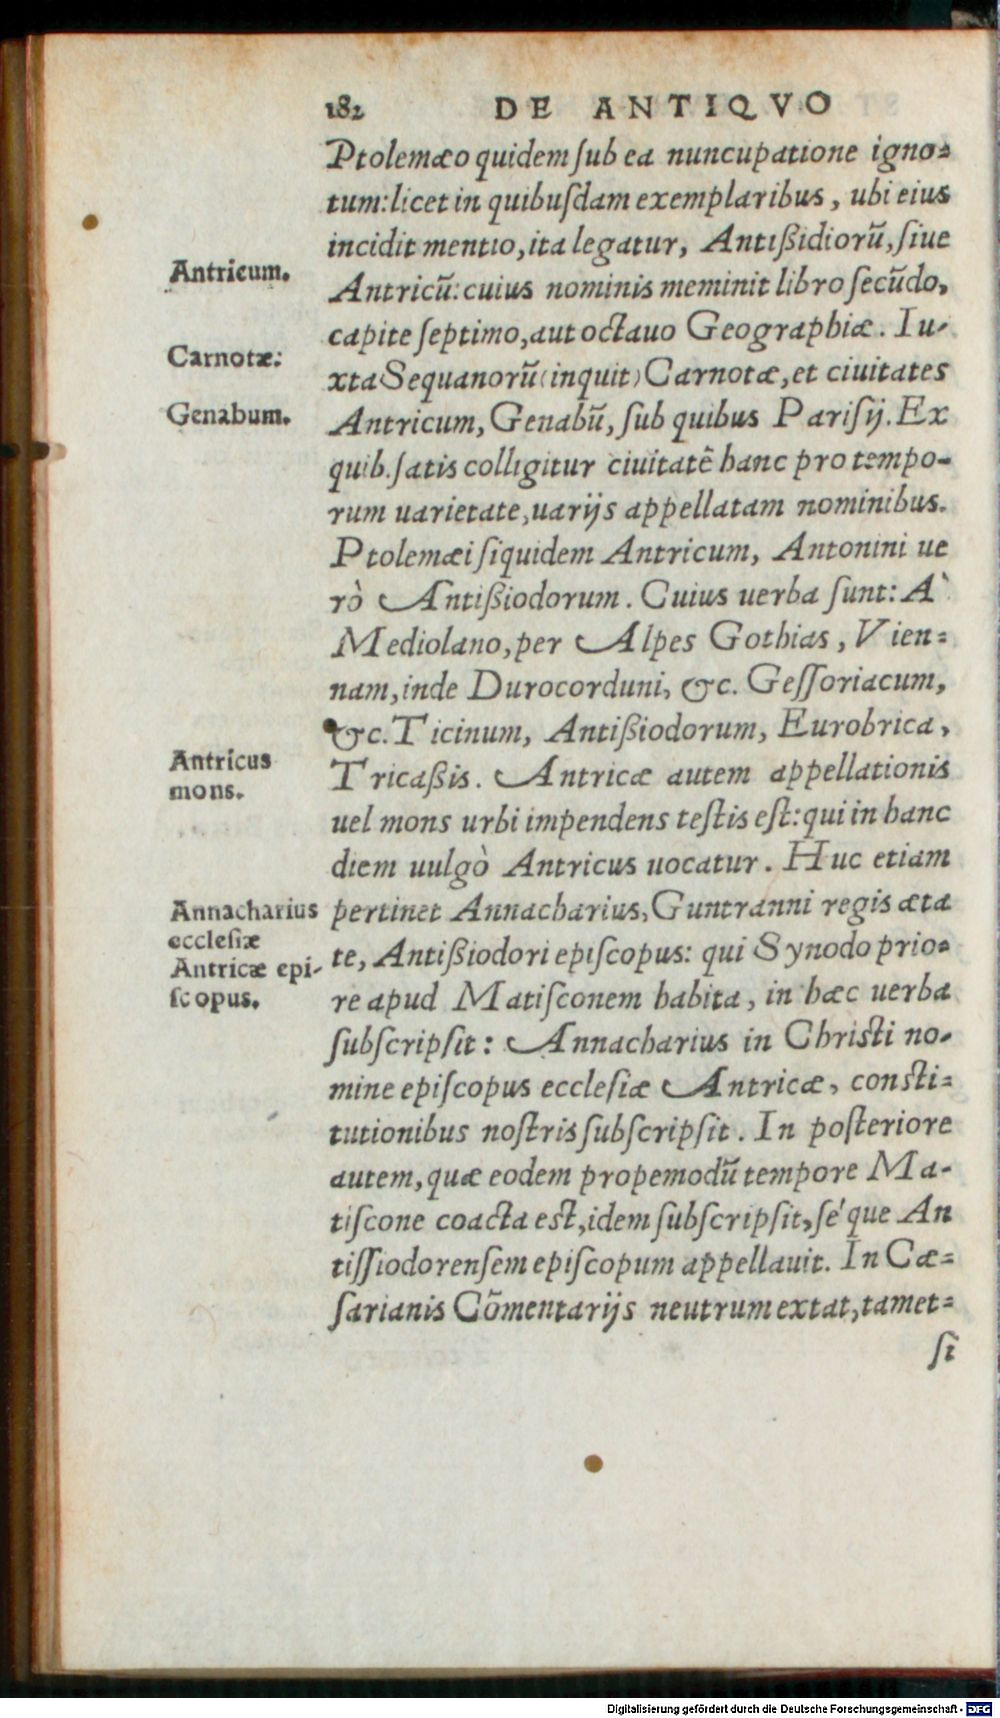 182 DE ANTIQVO
Ptolemæo quidem ſub ea nuncupatione igno=
tum: licet in quibuſdam exemplaribus, ubi eius
incidit mentio, ita legatur, Antißidiorũ, ſiue
Antricum.
Antricũ: cuius nominis meminit libro ſecũdo,
capite ſeptimo, aut octauo Geographiæ. Iu-
Carnotæ:
xta Sequanorũ (inquit) Carnotæ, et ciuitates
Genabum.
Antricum, Genabũ, ſub quibus Pariſij. Ex
quib. ſatis colligitur ciuitatẽ hanc pro tempo-
rum uarietate, uarijs appellatam nominibus.
Ptolemæi ſiquidem Antricum, Antonini ue
rò Antißiodorum. Cuius uerba ſunt: A`
Mediolano, per Alpes Gothias, Vien=
nam, inde Durocorduni, &c. Geſſoriacum,
&c. Ticinum, Antißiodorum, Eurobrica,
Antricus
mons.
Tricaßis. Antricæ autem appellationis
uel mons urbi impendens teſtis eſt: qui in hanc
diem uulgò Antricus uocatur. Huc etiam
Annacharius
eccleſiæ
Antricæ epi-
ſcopus.
pertinet Annacharius, Guntranni regis æta
te, Antißiodori epiſcopus: qui Synodo prio=
re apud Matiſconem habita, in hæc uerba
ſubſcripſit: Annacharius in Chriſti no-
mine epiſcopus eccleſiæ Antricæ, conſti=
tutionibus noſtris ſubſcripſit. In poſteriore
autem, quæ eodem propemodũ tempore Ma-
tiſcone coacta eſt, idem ſubſcripſit, ſe´que An
tiſſiodorenſem epiſcopum appellauit. In Cæ=
ſarianis Cõmentarijs neutrum extat, tamet=
ſi
Digitalisierung gefördert durch die Deutsche Forschungsgemeinschaft - DFG